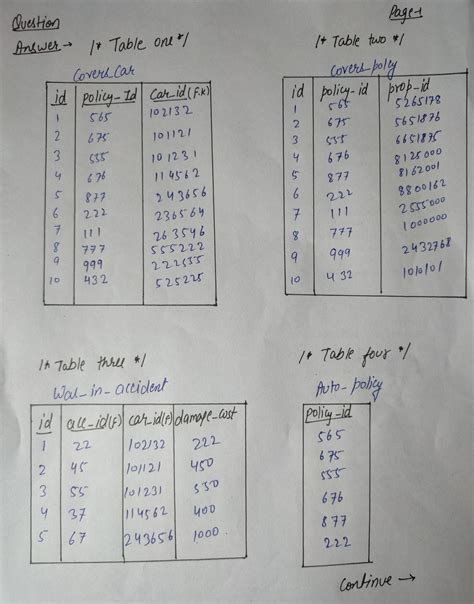 Question
Page-1
Answer → /* Table one */
Covers_Car
id policy_Id Car_id (F.K)
1 565 102132
2 675 101121
3 555 101231
4 676 114562
5 877 243656
6 222 236564
7 111 263546
8 777 555222
9 999 222555
10 432 525225
/* Table two */
Covers_poly
id policy_id prop_id
1 565 5265178
2 675 5651876
3 555 6651875
4 676 8125000
5 877 8162001
6 222 8800162
7 111 2555000
8 777 1000000
9 999 2432768
10 432 1010101
/* Table three */
Was_in_accident
id acc_id(F) car_id(F) damage_cost
1 22 102132 222
2 45 101121 450
3 55 101231 550
4 37 114562 400
5 67 243656 1000.
/* Table four */
Auto_policy
policy_id
565
675
555
676
877
222
Continue →